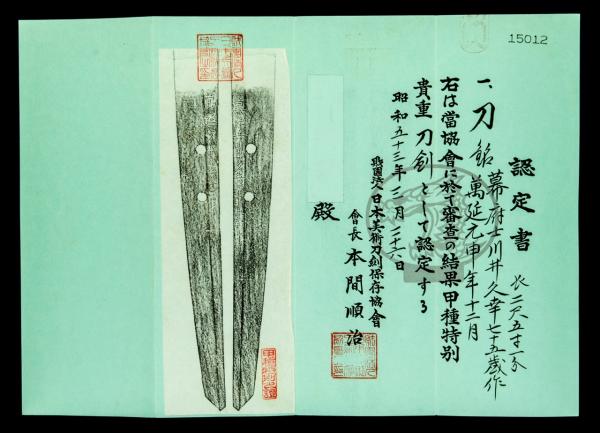 15012
認定書
一、刀 銘 幕府士川井久幸七十五歳作
萬延元申年十二月
長二尺五寸一分
右は當協會に於て審査の結果甲種特別
貴重刀劍として認定する
昭和五十三年三月二十六日
財團法人日本美術刀劍保存協會
會長 本間順治
殿